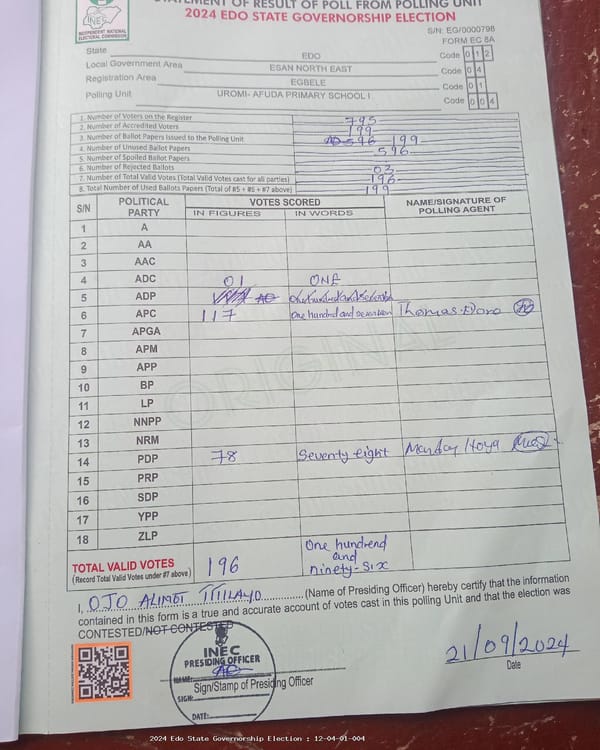 STATEMENT OF RESULT OF POLL FROM POLLING UNIT
2024 EDO STATE GOVERNORSHIP ELECTION
INEC
INDEPENDENT NATIONAL
ELECTORAL COMMISSION
S/N: EG/0000798
FORM EC 8A
State EDO Code 0 1 2
Local Government Area ESAN NORTH EAST Code 0 4
Registration Area EGBELE Code 0 1
Polling Unit UROMI- AFUDA PRIMARY SCHOOL I Code 0 0 4
1. Number of Voters on the Register 795
2. Number of Accredited Voters 199
3. Number of Ballot Papers Issued to the Polling Unit 596 199
4. Number of Unused Ballot Papers 596
5. Number of Spoiled Ballot Papers
6. Number of Rejected Ballots 03
7. Number of Total Valid Votes (Total Valid Votes cast for all parties) 196
8. Total Number of Used Ballots Papers (Total of #5 + #6 + #7 above) 199
S/N POLITICAL PARTY VOTES SCORED NAME/SIGNATURE OF POLLING AGENT
IN FIGURES IN WORDS
1 A
2 AA
3 AAC
4 ADC 01 ONE
5 ADP
6 APC 117 One hundred and seventeen Thomas
7 APGA
8 APM
9 APP
10 BP
11 LP
12 NNPP
13 NRM
14 PDP 78 Seventy eight Monday
15 PRP
16 SDP
17 YPP
18 ZLP
TOTAL VALID VOTES 196 One hundrend and ninety-six
(Record Total Valid Votes under #7 above)
I, OJO ALIMOT TITILAYO (Name of Presiding Officer) hereby certify that the information
contained in this form is a true and accurate account of votes cast in this polling Unit and that the election was
CONTESTED/NOT CONTESTED
INEC
PRESIDING OFFICER
NAME:
Sign/Stamp of Presiding Officer
SIGN:
DATE:
21/09/2024
Date
ORIGINAL
2024 Edo State Governorship Election : 12-04-01-004